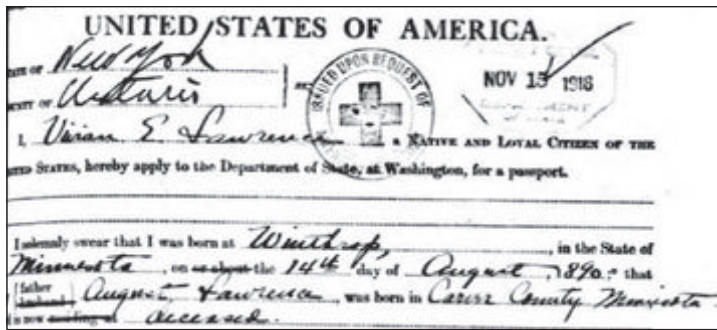 UNITED STATES OF AMERICA.
ATE OF New York
NTY OF Ontario
ISSUED UPON REQUEST OF
NOV 13 1918
I, Vivian E. Lawrence, a NATIVE AND LOYAL CITIZEN OF THE
TED STATES, hereby apply to the Department of State, at Washington, for a passport.
I solemnly swear that I was born at Winthrop, in the State of
Minnesota, on or about the 14th day of August, 1890; that
father
husband
August Lawrence, was born in Carver County Minnesota
is now residing at deceased.